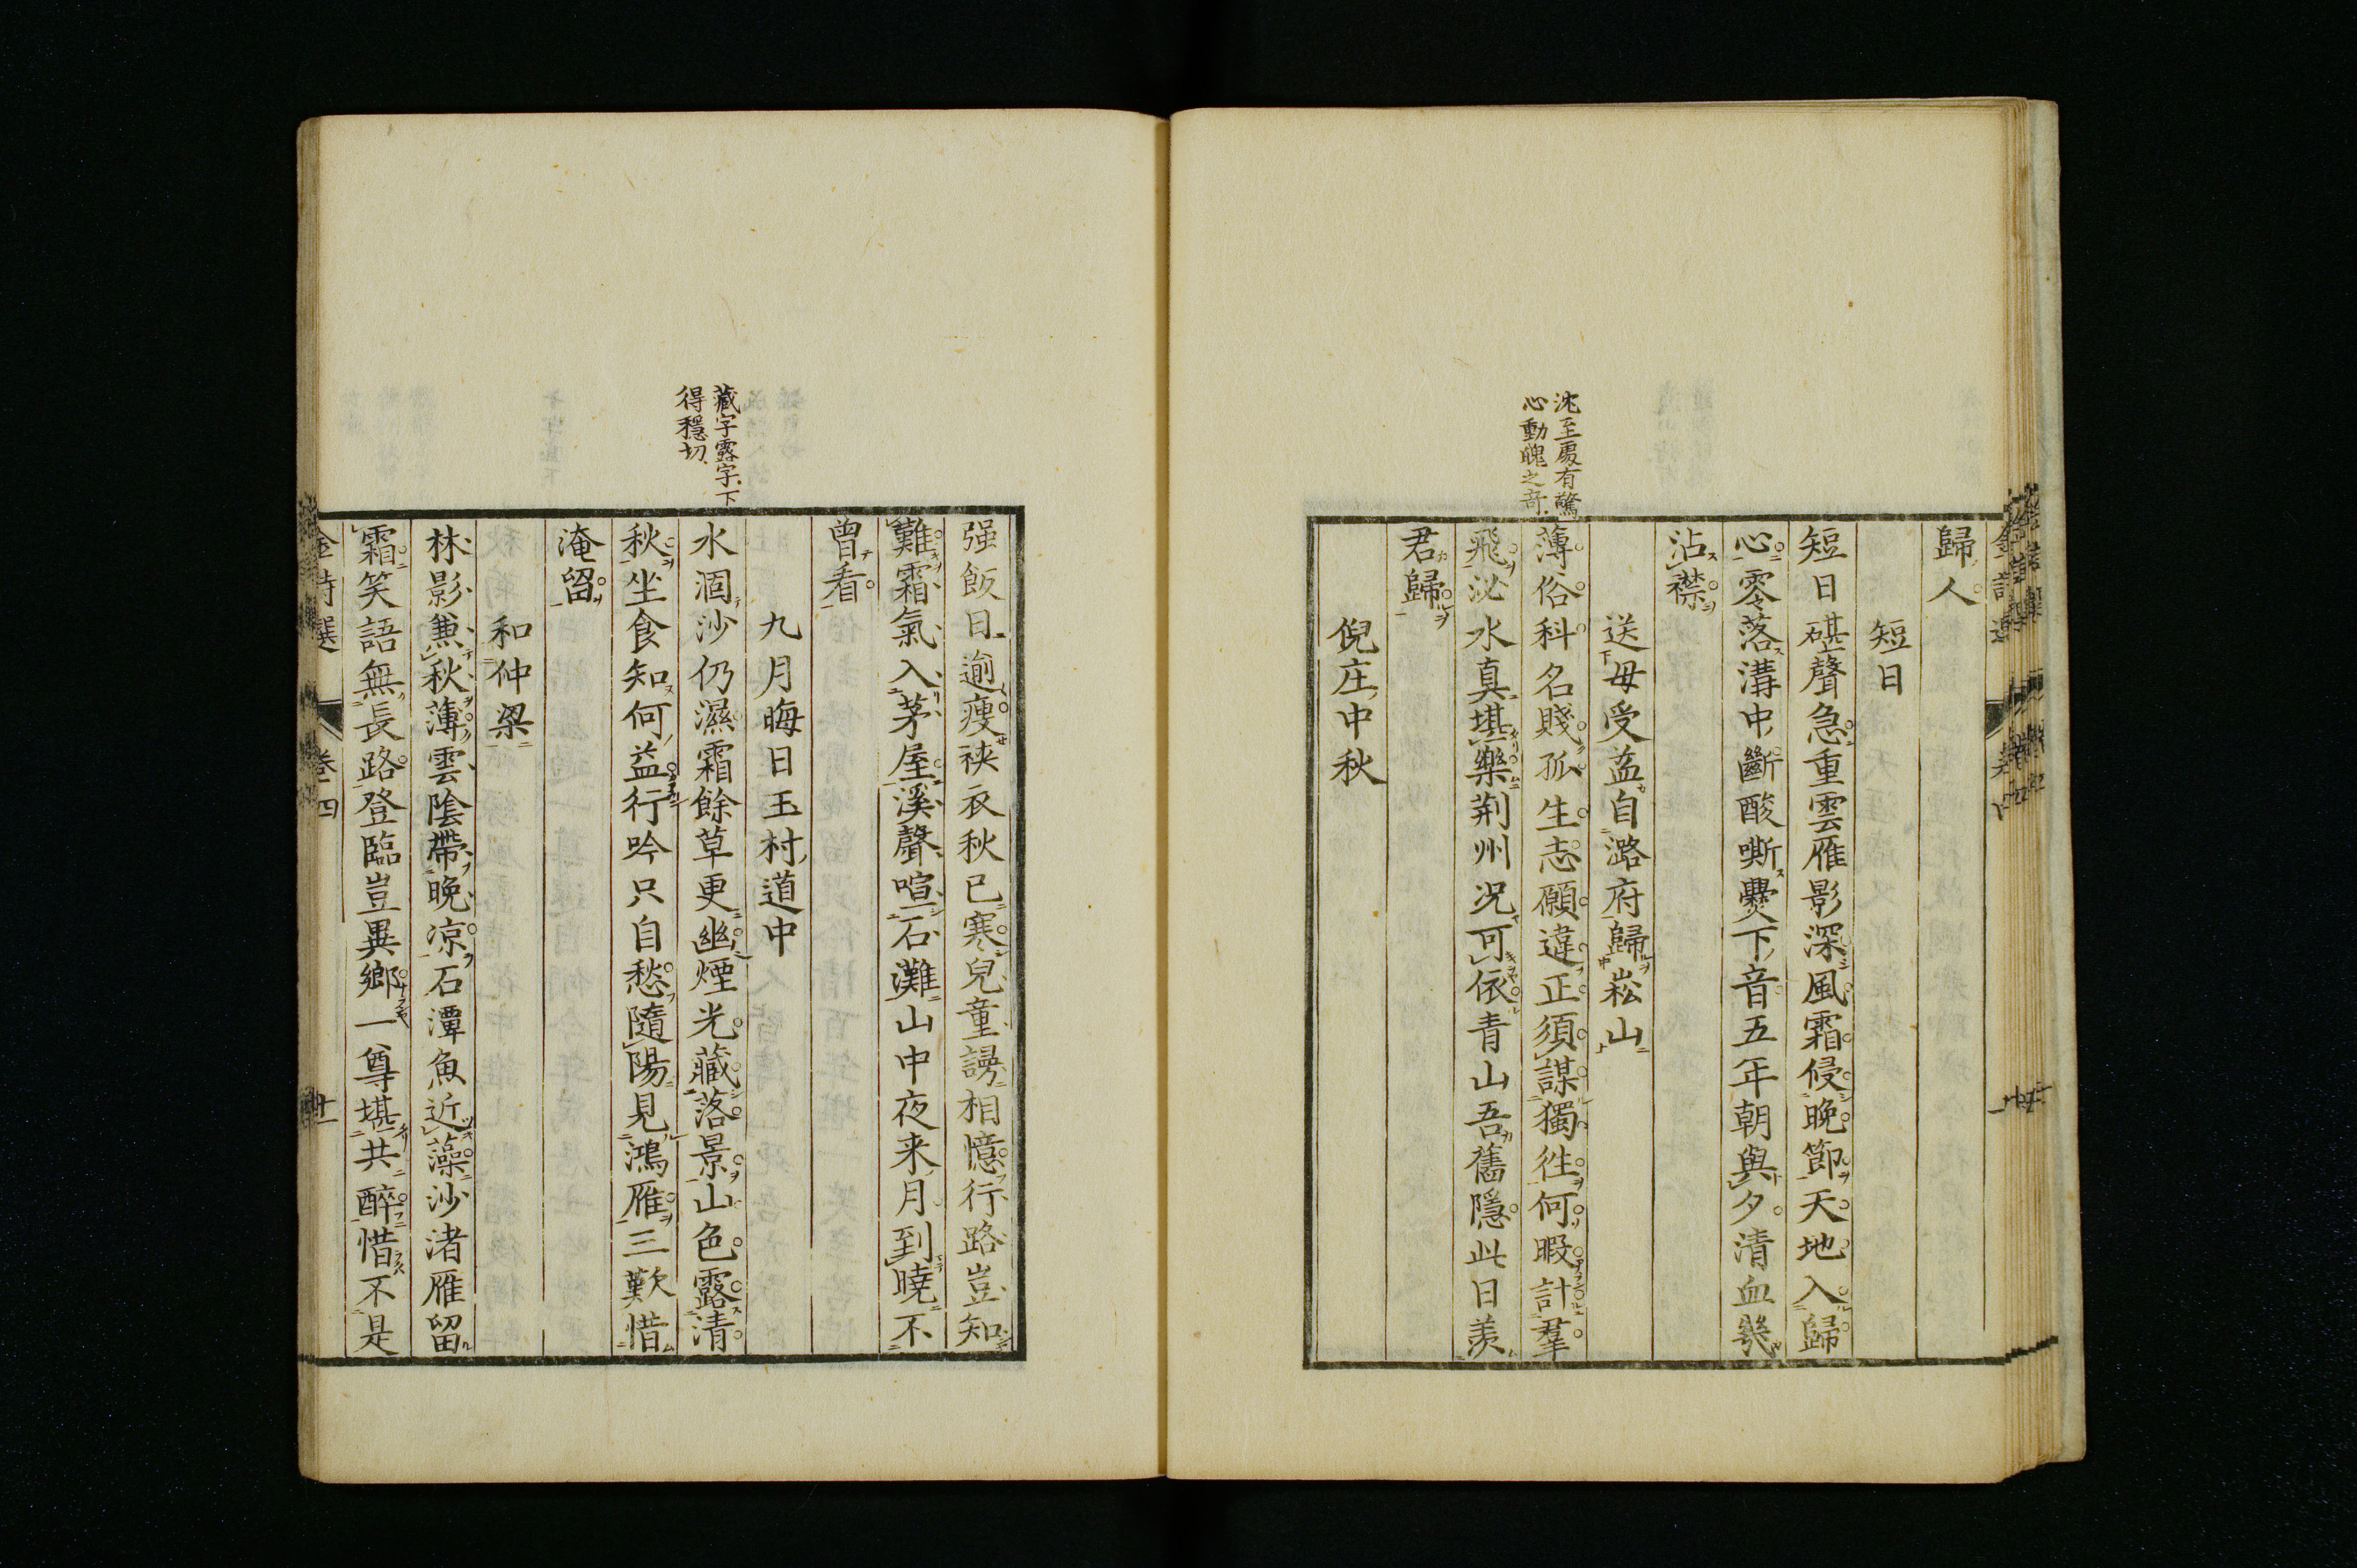 歸人
短日
短日碪聲急重雲雁影深風霜侵晚節天地入歸
心零落溝中斷酸嘶爨下音五年朝與夕清血幾
沾襟
送母受益自潞府歸崧山
薄俗科名賤孤生志願違正須謀獨徃何暇計羣
飛泌水真堪樂荆州况可依青山吾舊隱此日羨
君歸
倪庄中秋
沈至處有驚
心動魄之音
强飯日逾瘦裌衣秋已寒兒童謾相憶行路豈知
難霜氣入茅屋溪聲喧石灘山中夜来月到曉不
曾看
九月晦日玉村道中
水涸沙仍濕霜餘草更幽煙光藏落景山色露清
秋坐食知何益行吟只自愁隨陽見鴻雁三歎惜
淹留
和仲梁
林影兼秋薄雲陰帶晚凉石潭魚近藻沙渚雁留
霜笑語無長路登臨豈異鄉一尊堪共醉惜不是
藏字露字下
得穩切
金詩選 卷四 廿一